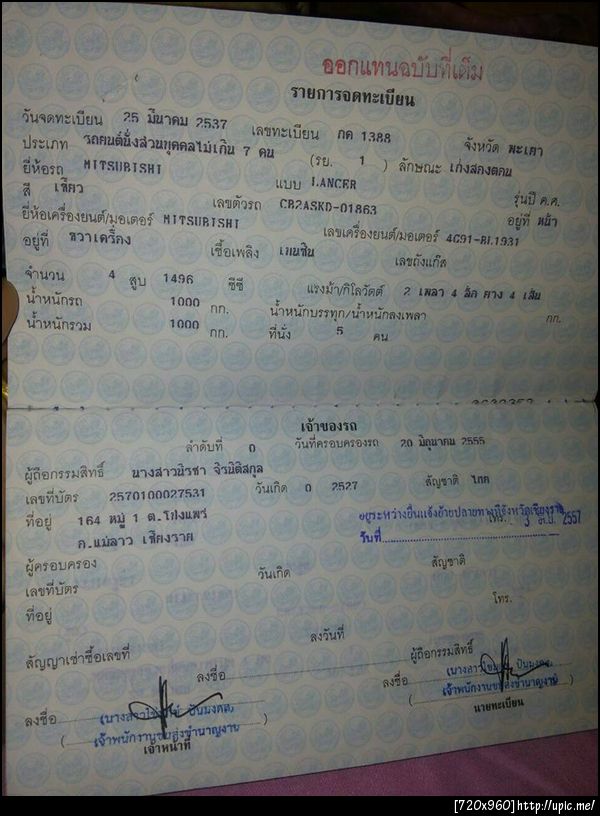 ออกแทนฉบับที่เดิม
รายการจดทะเบียน
วันจดทะเบียน 25 มีนาคม 2537 เลขทะเบียน กค 1388 จังหวัด พะเยา
ประเภท รถยนต์นั่งส่วนบุคคลไม่เกิน 7 คน (รย. 1 ) ลักษณะ เก๋งสองตอน
ยี่ห้อรถ MITSUBISHI แบบ LANCER รุ่นปี ค.ศ.
สี เขียว เลขตัวรถ CB2ASKD-01863 อยู่ที่ หน้า
ยี่ห้อเครื่องยนต์/มอเตอร์ MITSUBISHI เลขเครื่องยนต์/มอเตอร์ 4G91-BL1931
อยู่ที่ ขวาเครื่อง เชื้อเพลิง เบนซิน เลขถังแก๊ส
จำนวน 4 สูบ 1496 ซีซี แรงม้า/กิโลวัตต์ 2 เพลา 4 ล้อ ยาง 4 เส้น
น้ำหนักรถ 1000 กก. น้ำหนักบรรทุก/น้ำหนักลงเพลา กก.
น้ำหนักรวม 1000 กก. ที่นั่ง 5 คน
เจ้าของรถ
ลำดับที่ 0 วันที่ครอบครองรถ 20 มิถุนาคม 2555
ผู้ถือกรรมสิทธิ์ นางสาวนิรชา จิรนิติสกุล
เลขที่บัตร 2570100027531 วันเกิด 0 2527 สัญชาติ ไทย
ที่อยู่ 164 หมู่ 1 ต.โป่งแพร่ โทร.
อ.แม่ลาว เชียงราย
อยู่ระหว่างยื่นแจ้งย้ายปลายทางที่จังหวัดเชียงราย
วันที่ 2557
ผู้ครอบครอง
เลขที่บัตร วันเกิด สัญชาติ
ที่อยู่ โทร.
สัญญาเช่าซื้อเลขที่ ลงวันที่
ลงชื่อ ผู้ถือกรรมสิทธิ์
ลงชื่อ ลงชื่อ
ปันมงคล) ปันมงคล)
เจ้าพนักงานขนส่งชำนาญงาน เจ้าพนักงานขนส่งชำนาญงาน
เจ้าหน้าที่ นายทะเบียน
[720x960]http://upic.me/